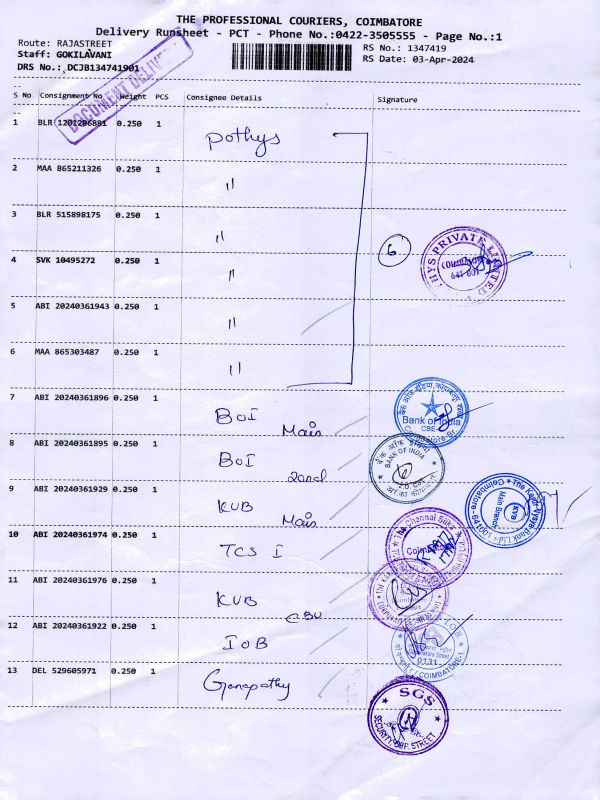 THE PROFESSIONAL COURIERS, COIMBATORE
Delivery Runsheet - PCT - Phone No.:0422-3505555 - Page No.:1
Route: RAJASTREET
Staff: GOKILAVANI
DRS No.: DCJB134741901
RS No.: 1347419
RS Date: 03-Apr-2024
DOCUMENT DELIVER
S No Consignment No Weight PCS Consignee Details Signature
1 BLR 1201206881 0.250 1 Pothys
2 MAA 865211326 0.250 1 "
3 BLR 515898175 0.250 1 "
4 SVK 10495272 0.250 1 "
5 ABI 20240361943 0.250 1 "
6 MAA 865303487 0.250 1 "
6
HYS PRIVATE LIMITED
641 001
7 ABI 20240361896 0.250 1 BOI Main
Bank of India
CBE
8 ABI 20240361895 0.250 1 BOI
बैंक ऑफ इंडिया
BANK OF INDIA
9 ABI 20240361929 0.250 1 KVB Main
KVB
Main Branch
Coimbatore-641001
10 ABI 20240361974 0.250 1 TCS I
The Chennai Silks
11 ABI 20240361976 0.250 1 KVB CBU
12 ABI 20240361922 0.250 1 IOB
IOB
0131
COIMBATORE-1
13 DEL 529605971 0.250 1 Ganapathy
SGS
SECURITY OPP. STREET